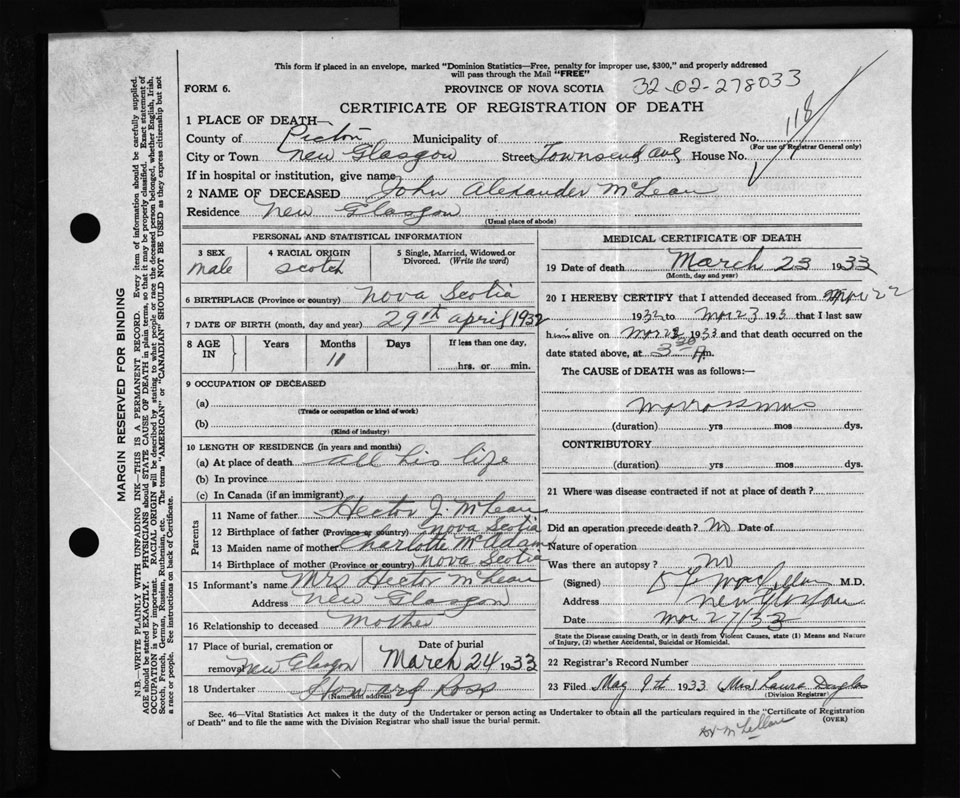 This form if placed in an envelope, marked "Dominion Statistics—Free, penalty for improper use, $300," and properly addressed
will pass through the Mail "FREE"
FORM 6.
PROVINCE OF NOVA SCOTIA
32-02-278033
CERTIFICATE OF REGISTRATION OF DEATH
118
1 PLACE OF DEATH—
County of Pictou Municipality of Registered No.
(For use of Registrar General only)
City or Town New Glasgow Street Townsend Ave House No.
If in hospital or institution, give name
2 NAME OF DECEASED John Alexander McLean
Residence New Glasgow
(Usual place of abode)
PERSONAL AND STATISTICAL INFORMATION
3 SEX male
4 RACIAL ORIGIN Scotch
5 Single, Married, Widowed or Divorced. (Write the word)
6 BIRTHPLACE (Province or country) Nova Scotia
7 DATE OF BIRTH (month, day and year) 29th April 1932
8 AGE IN Years Months 11 Days If less than one day, hrs. or min.
9 OCCUPATION OF DECEASED
(a)
(Trade or occupation or kind of work)
(b)
(Kind of industry)
10 LENGTH OF RESIDENCE (in years and months)
(a) At place of death all his life
(b) In province
(c) In Canada (if an immigrant)
Parents
11 Name of father Hector J. McLean
12 Birthplace of father (Province or country) Nova Scotia
13 Maiden name of mother Charlotte McAdam
14 Birthplace of mother (Province or country) Nova Scotia
15 Informant's name Mrs Hector McLean
Address New Glasgow
16 Relationship to deceased Mother
17 Place of burial, cremation or removal New Glasgow
Date of burial March 24 1933
18 Undertaker Howard Ross
(Name and address)
MEDICAL CERTIFICATE OF DEATH
19 Date of death March 23 1933
(Month, day and year)
20 I HEREBY CERTIFY that I attended deceased from Mar 22
1932 to Mar 23 193 that I last saw
him alive on Mar 23 1933 and that death occurred on
date stated above, at 3 30 A m.
The CAUSE of DEATH was as follows:—
Marrasmus
(duration) yrs mos dys.
CONTRIBUTORY
(duration) yrs mos dys.
21 Where was disease contracted if not at place of death?
Did an operation precede death? No Date of
Nature of operation
Was there an autopsy? No
(Signed) M.D.
Address New Glasgow
Date Mar 27/33
State the Disease causing Death, or in death from Violent Causes, state (1) Means and Nature
of Injury, (2) whether Accidental, Suicidal or Homicidal.
22 Registrar's Record Number
23 Filed May 9th 1933 (Mrs) Laura Douglas
(Division Registrar)
Sec. 46—Vital Statistics Act makes it the duty of the Undertaker or person acting as Undertaker to obtain all the particulars required in the "Certificate of Registration
of Death" and to file the same with the Division Registrar who shall issue the burial permit.
(OVER)
McLellan
MARGIN RESERVED FOR BINDING
N.B.—WRITE PLAINLY WITH UNFADING INK—THIS IS A PERMANENT RECORD. Every item of information should be carefully supplied.
AGE should be stated EXACTLY. PHYSICIANS should STATE CAUSE OF DEATH in plain terms, so that it may be properly classified. Exact statement of
OCCUPATION is very important. RACIAL ORIGIN will be described by stating to what people or race the deceased person belonged, whether English, Irish,
Scotch, French, German, Russian, Ruthenian, etc. The terms "AMERICAN" or "CANADIAN" SHOULD NOT BE USED as they express citizenship but not
a race or people. See instructions on back of Certificate.